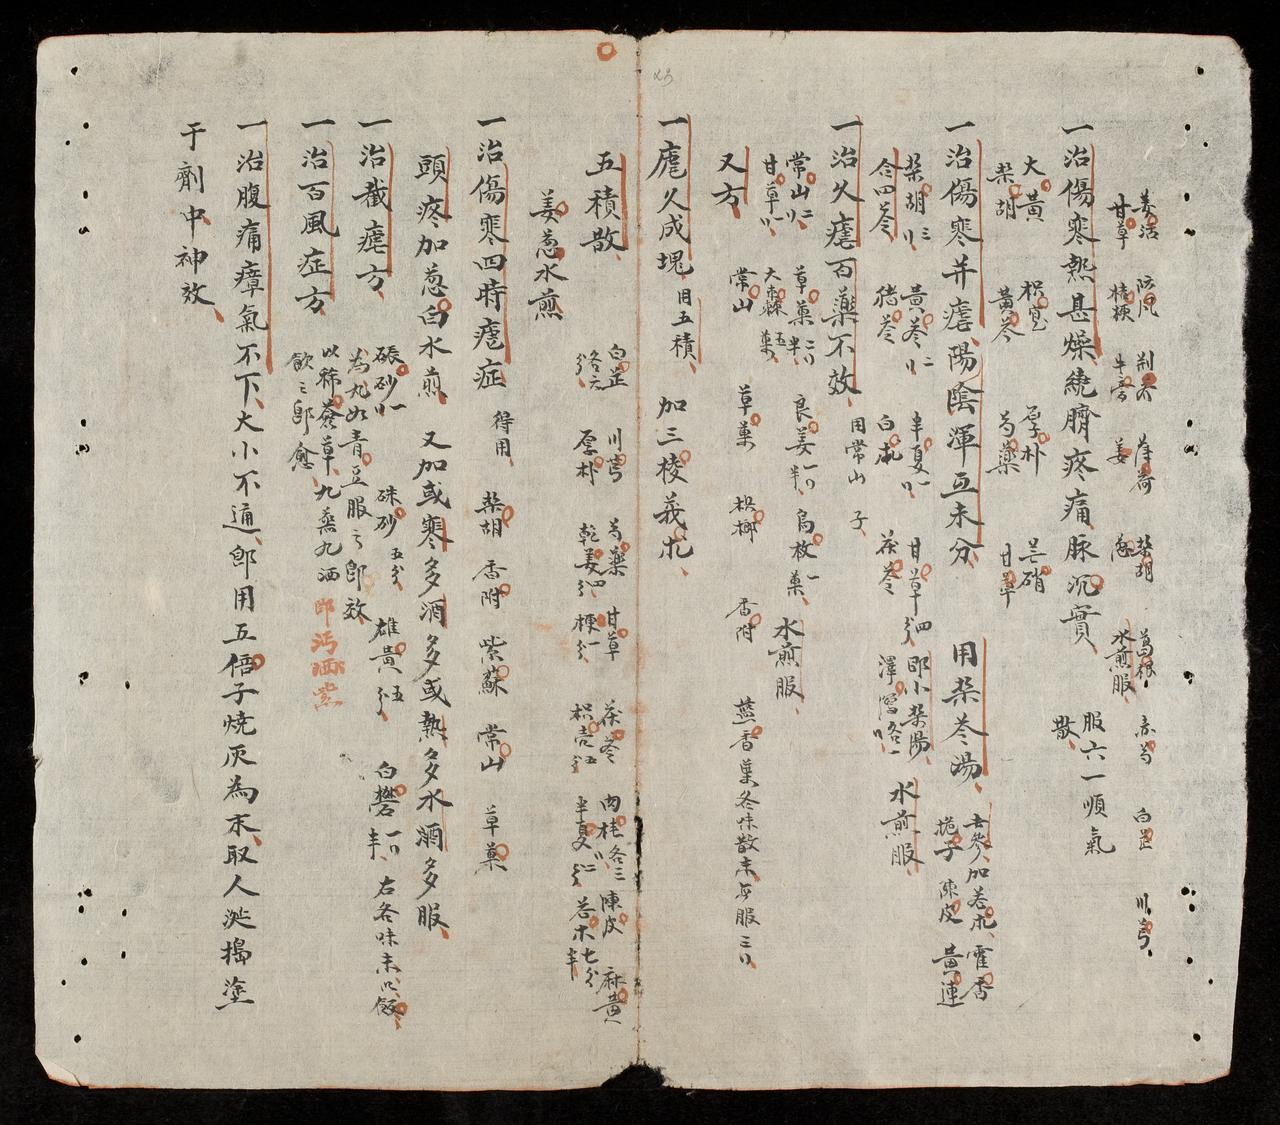 羗活 防風 荆芥 薄荷 柴胡 葛根 赤芍 白芷 川芎
甘草 桔梗 牛旁 姜 水煎服
一治傷寒熱甚燥繞臍疼痛脉沉實 服六一順氣散
大黃 枳寔 厚朴 芒硝
柴胡 黃芩 芍藥 甘草
一治傷寒并瘧陽陰渾亙未分 用柴苓湯 去參加蒼朮 霍香 梔子 陳皮 黃連
柴胡三 黃芩二 半夏 甘草四 即小柴湯
合四苓 猪苓 白朮 茯苓 澤瀉 水煎服
一治久瘧百藥不效 用常山子
常山二 草菓半 良姜一半 烏枚一菓 水煎服
甘草 大棗五菓
又方 常山 草菓 梹榔 香附 藿香葉各味散末每服三
一瘧久成塊 用五積 加三棱莪朮
五積散 白芷 川芎 芍藥 甘草 茯苓 肉桂各三 陳皮 麻黃
厚朴 乾姜四 枳壳五 半夏二 蒼木七
姜葱水煎
一治傷寒四時瘧症 得用 柴胡 香附 紫蘇 常山 草菓
頭疼加葱白水煎 又加或寒多酒多或熱多水酒多服
一治截瘧方 砒砂一 硃砂五 雄黃五 白礬一半 右各味末以飯
為丸如青豆服之即效
一治百風症方 以豨薟草九蒸九洒 即污洒蒸
飲之即愈
一治腹痛瘴氣不下大小不通即用五倍子燒灰為末取人涎搗塗
于劑中神效